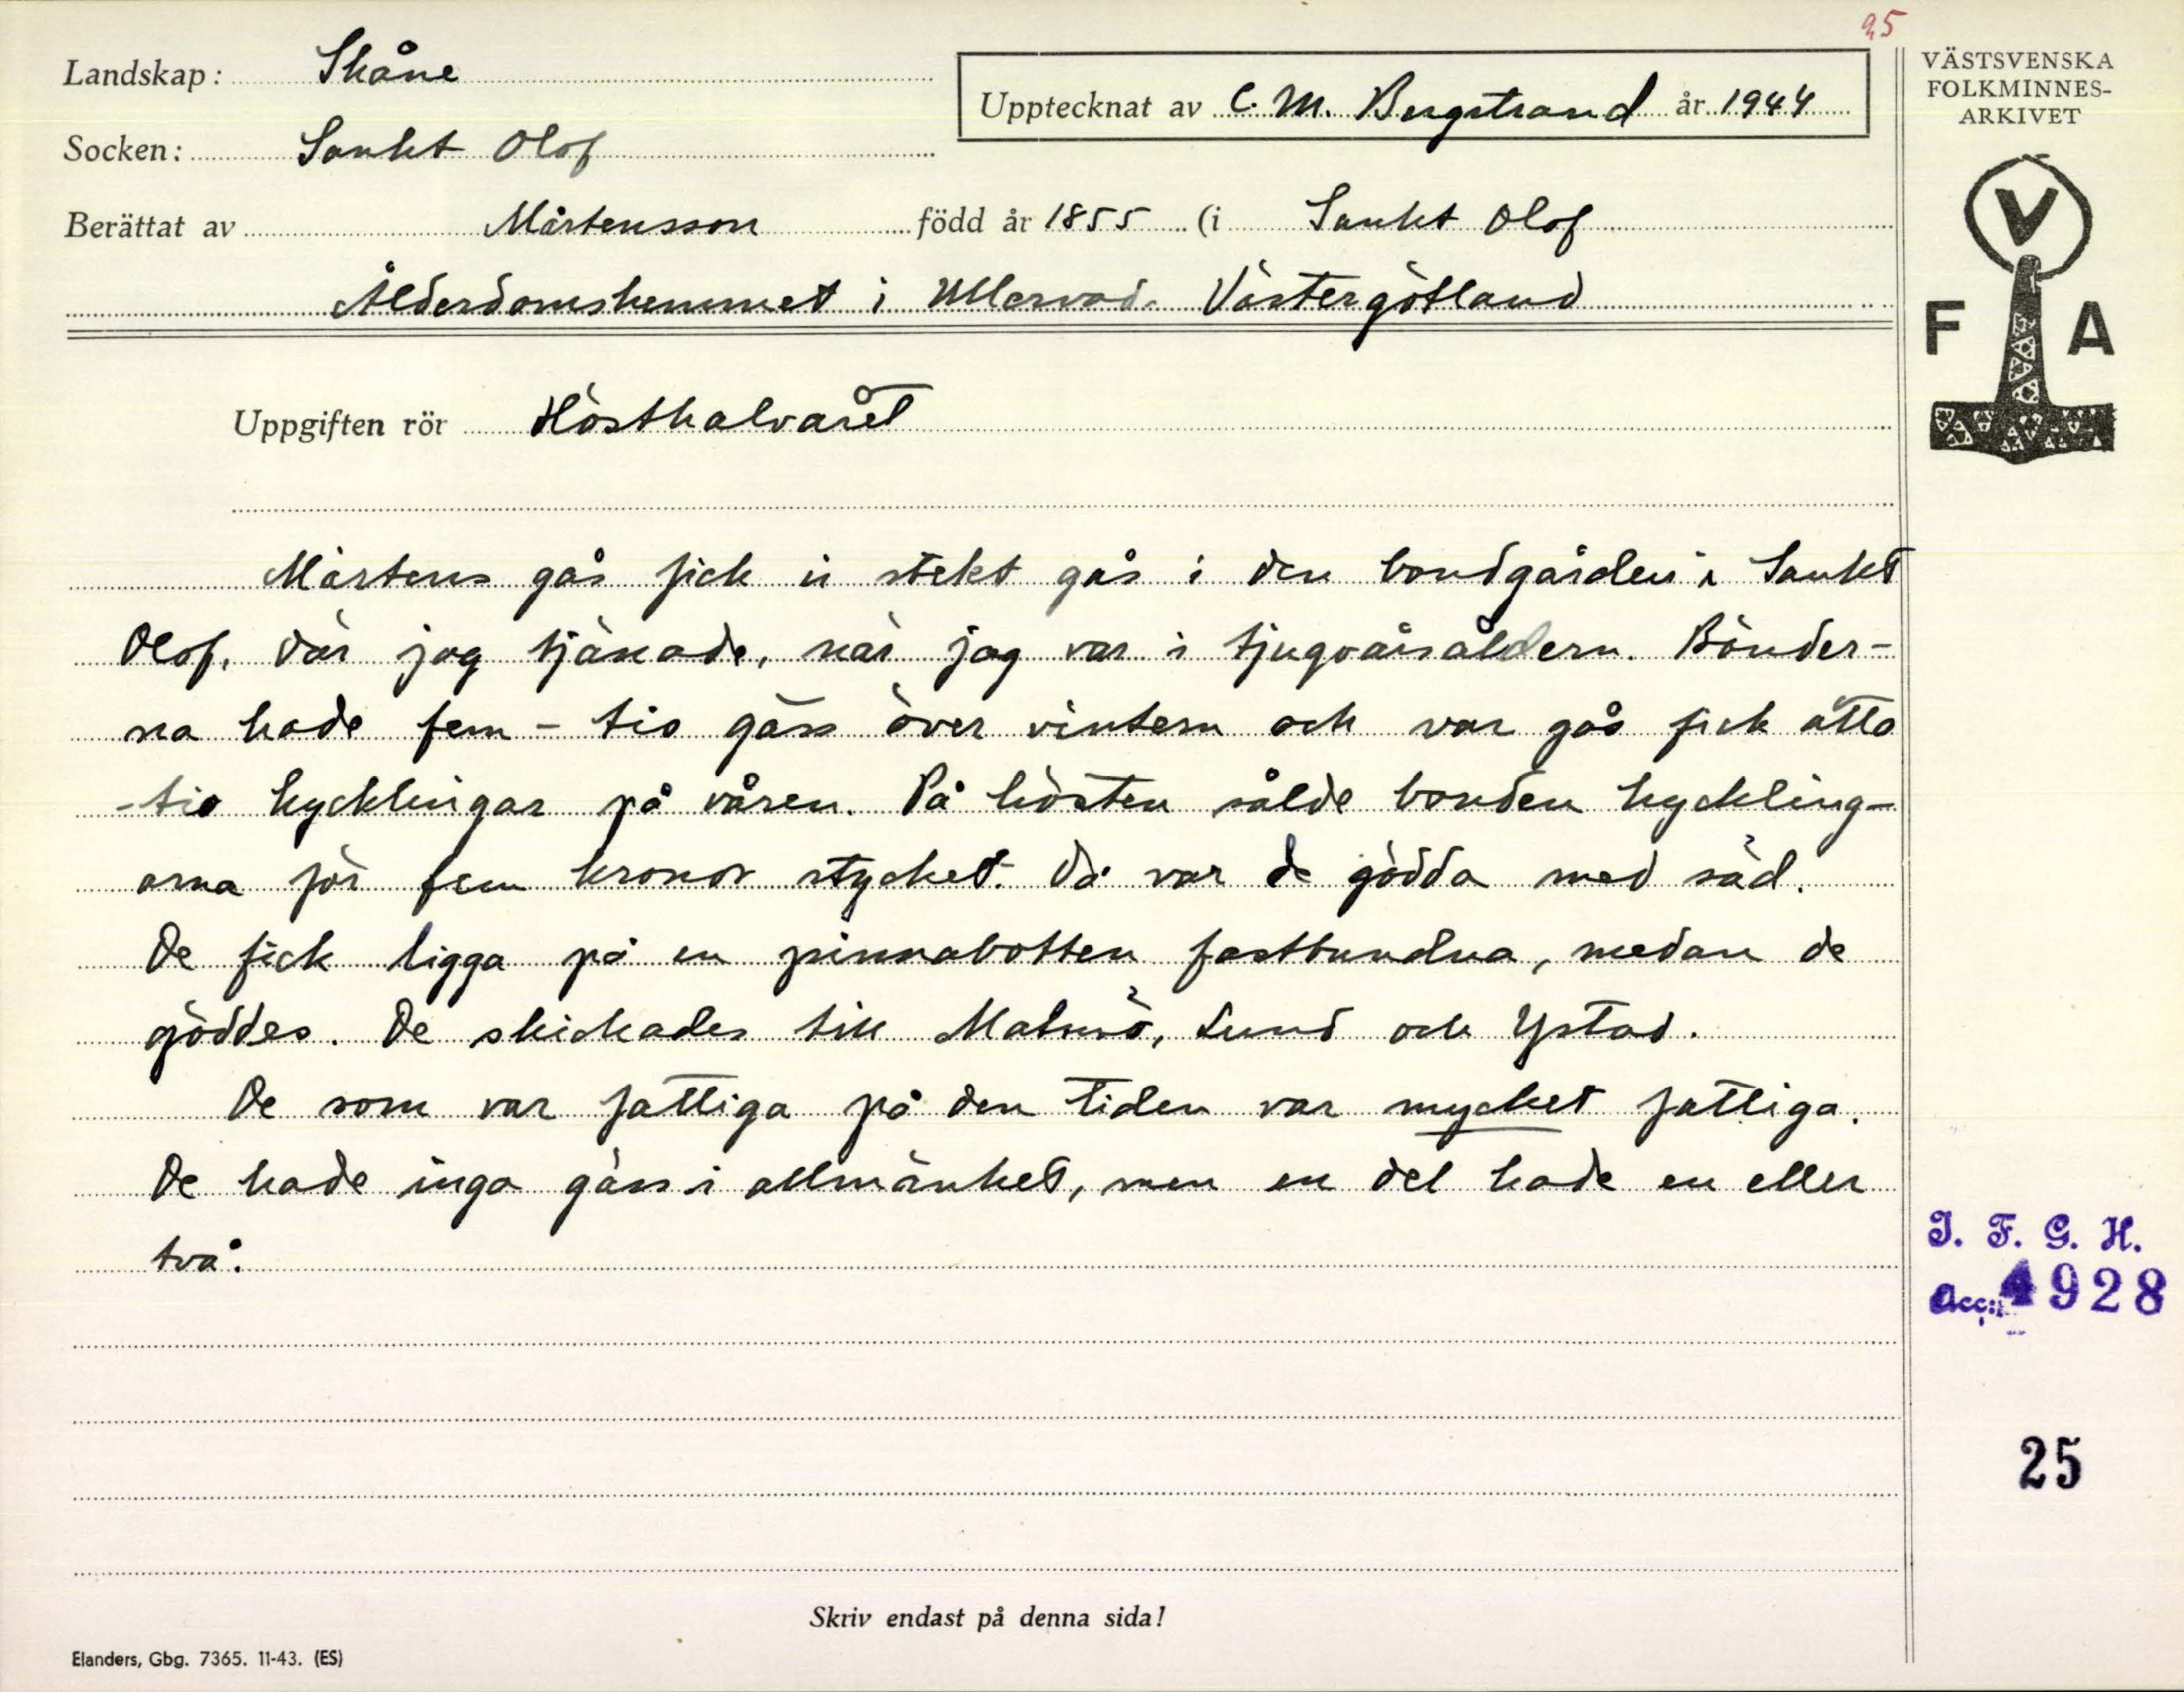 25
Landskap: Skåne
Upptecknat av C. M. Bergstrand år 1944
Socken: Sankt Olof
Berättat av Mårtensson född år 1855 (i Sankt Olof
Ålderdomshemmet i Ullervad. Västergötland
Uppgiften rör Hösthalvåret
Mårtens gås fick vi stekt gås i den bondgården i Sankt
Olof, där jag tjänade, när jag var i tjugoårsåldern. Bönder-
na hade fem - tio gäss över vintern och var gås fick åtta
-tio kycklingar på våren. På hösten sålde bonden kyckling-
arna för fem kronor stycket. Då var de gödda med säd.
De fick ligga på en pinnabotten fastbundna, medan de
göddes. De skickades till Malmö, Lund och Ystad.
De som var fattiga på den tiden var mycket fattiga.
De hade inga gäss i allmänhet, men en del hade en eller
två.
Skriv endast på denna sida!
Elanders, Gbg. 7365. 11-43. (ES)
VÄSTSVENSKA
FOLKMINNES-
ARKIVET
V
F A
I. F. G. H.
Acc: 4928
25